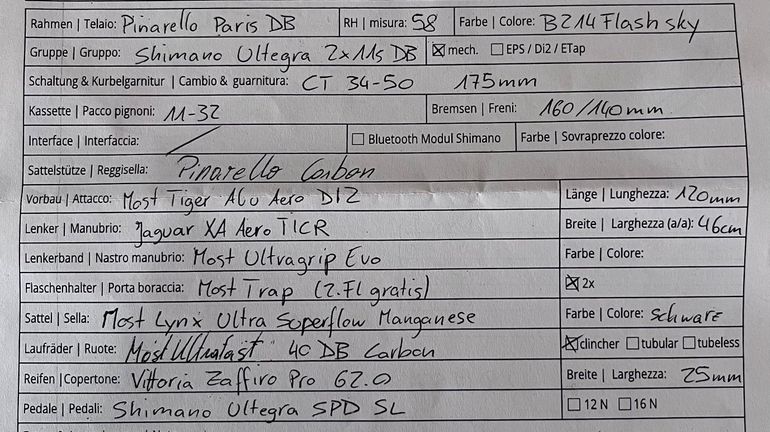 Rahmen | Telaio: Pinarello Paris DB RH | misura: 58 Farbe | Colore: B214 Flash sky
Gruppe | Gruppo: Shimano Ultegra 2x11s DB ☒ mech. ☐ EPS / Di2 / ETap
Schaltung & Kurbelgarnitur | Cambio & guarnitura: CT 34-50 175mm
Kassette | Pacco pignoni: 11-32 Bremsen | Freni: 160/140mm
Interface | Interfaccia: ☐ Bluetooth Modul Shimano Farbe | Sovraprezzo colore:
Sattelstütze | Reggisella: Pinarello Carbon
Vorbau | Attacco: Most Tiger Alu Aero DI2 Länge | Lunghezza: 120mm
Lenker | Manubrio: Jaguar XA Aero TICR Breite | Larghezza (a/a): 46cm
Lenkerband | Nastro manubrio: Most Ultragrip Evo Farbe | Colore:
Flaschenhalter | Porta boraccia: Most Trap (2.Fl gratis) ☒ 2x
Sattel | Sella: Most Lynx Ultra Superflow Manganese Farbe | Colore: schwarz
Laufräder | Ruote: Most Ultrafast 40 DB Carbon ☒ clincher ☐ tubular ☐ tubeless
Reifen | Copertone: Vittoria Zaffiro Pro G2.0 Breite | Larghezza: 25mm
Pedale | Pedali: Shimano Ultegra SPD SL ☐ 12 N ☐ 16 N